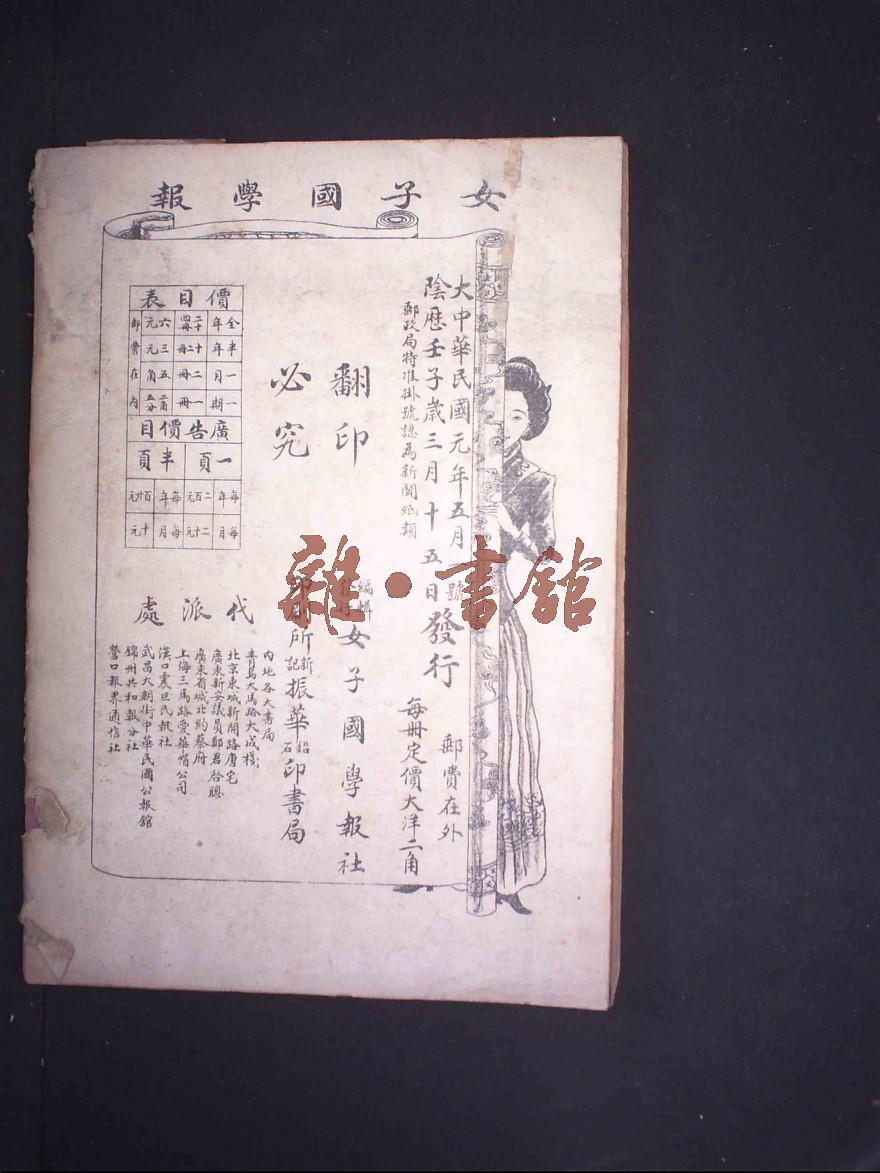 女子國學報
大中華民國元年五月一號
陰歷壬子歲三月十五日發行
郵政局特准掛號認為新聞紙類
郵費在外
每冊定價大洋二角
翻印
必究
編輯
發行
女子國學報社
印刷所
新記
振華
鉛石
印書局
價目表
全年 二十四冊 六元
半年 十二冊 三元
一月 二冊 五角
一期 一冊 二角五分
郵費在內
廣告價目
一頁 半頁
每年 二百元 每年 百廿元
每月 二十元 每月 十元
代派處
內地各大書局
青島大馬路大成棧
北京東城新開路唐宅
廣東新安議員鄭君啓聰
廣東省城北約蔡府
上海三馬路愛華帽公司
漢口震旦民報社
武昌大朝街中華民國公報館
錦州共和報分社
營口報界通信社
雜·書館